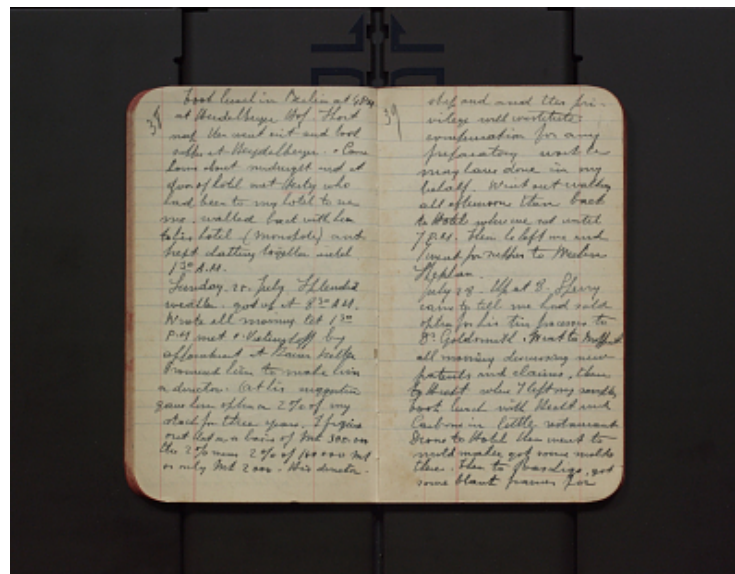 38
Took lunch in Berlin at 4 P.M.
at Heidelberger Hof. Short
nap. Then went out and took
supper at Heydelberger. Came
home about midnight and at
door of hotel met Hertz who
had been to my hotel to see
me. walked back with him
to his hotel (Monopole) and
kept chatting together until
1 30 A.M.
Sunday. 25. July. Splendid
weather. got up at 8 30 A.M.
Wrote all morning till 1 30
P.M. met by
appointment at Kaiser Keller
Promised him to make him
a director. At his suggestion
gave him option on 2% of my
stock for three years. I figure
out that on a basis of Mk 300.000
the 2% means 2% of 100.000 Mk
or only Mk 2000. His director-
39
ship and and this pri-
vilege will constitute
compensation for any
preparatory work he
may have done in my
behalf. Went out walking
all afternoon then back
to Hotel where we sat until
7 P.M. Then he left me and
I went for supper to
Stephan.
July 28. Up at 8. Sherry
came to tell me had sold
option for his tin process to
Dr. Goldsmith. Went to
all morning discussing new
patents and claims, then
to where I left my samples
Took lunch with and
in little restaurant
Drove to Hotel then went to
mold maker got some molds
there. Then to got
some blank frames for